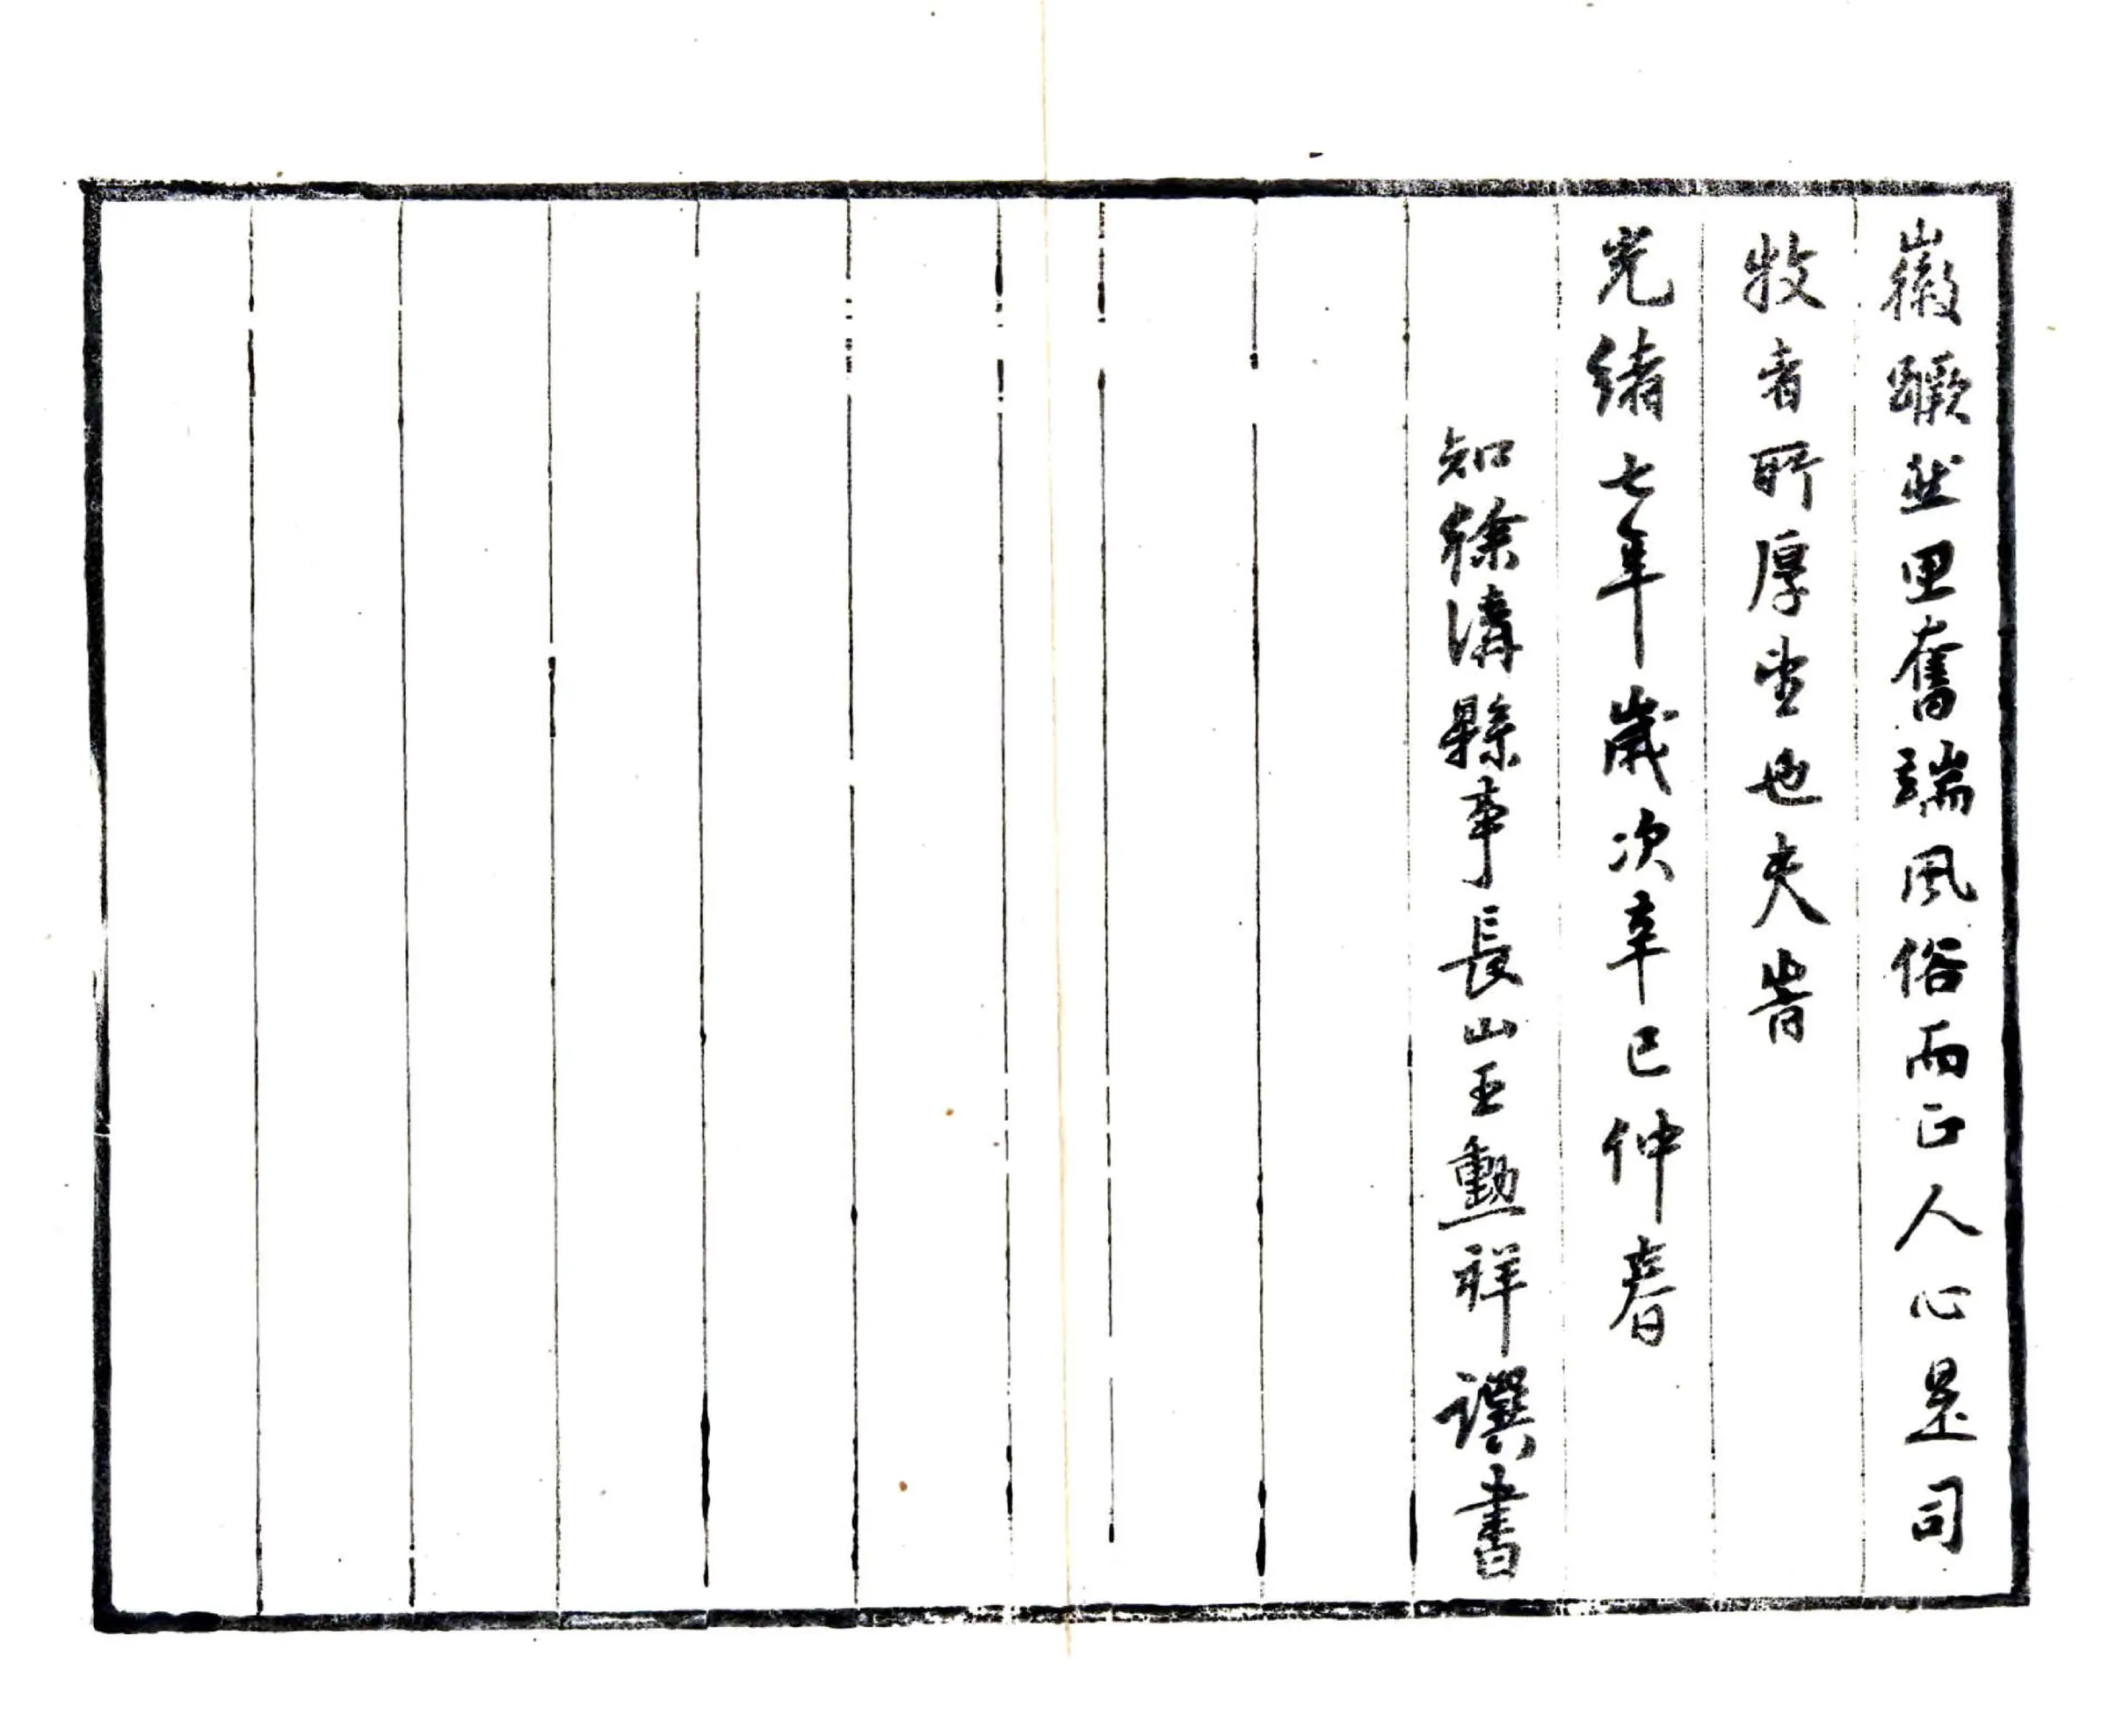 徽蹶然思奮端風俗而正人心是司
牧者所厚望也夫旹
光緒七年歲次辛巳仲春
知徐溝縣事長山王勳祥譔書